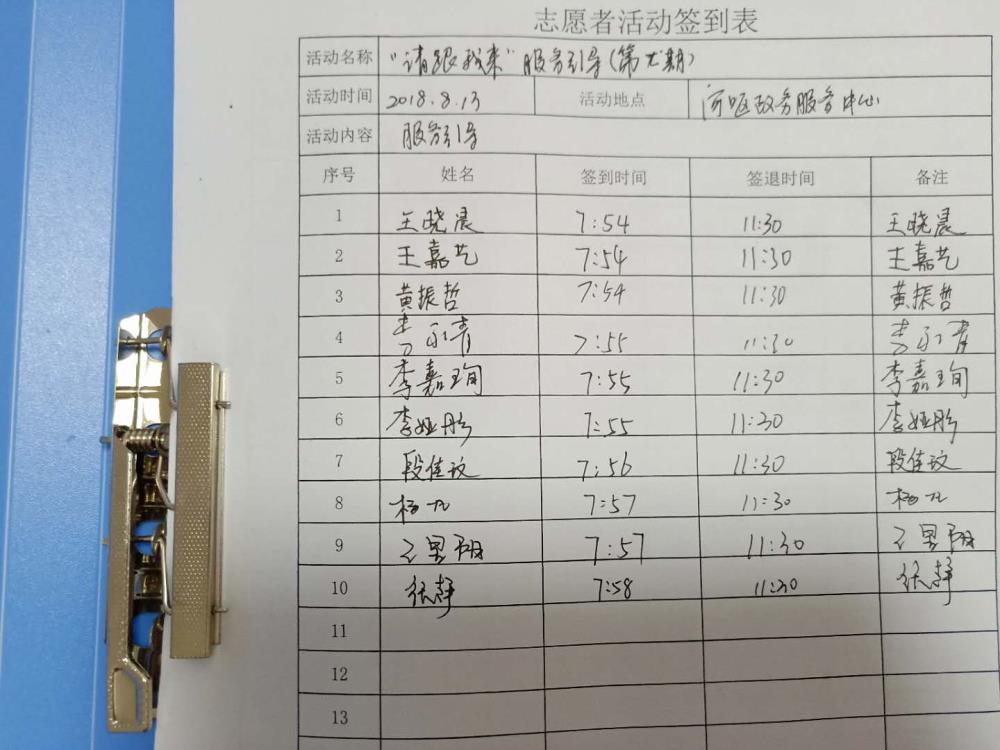 志愿者活动签到表
活动名称 “请跟我来”服务引导(第九期)
活动时间 2018.8.13 活动地点 政务服务中心
活动内容 服务引导
序号 姓名 签到时间 签退时间 备注
1 王晓晨 7:54 11:30 王晓晨
2 王嘉艺 7:54 11:30 王嘉艺
3 黄振哲 7:54 11:30 黄振哲
4 7:55 11:30
5 李嘉珣 7:55 11:30 李嘉珣
6 李娅彤 7:55 11:30 李娅彤
7 段佳玟 7:56 11:30 段佳玟
8 杨 7:57 11:30 杨
9 7:57 11:30
10 张静 7:58 11:30 张静
11
12
13